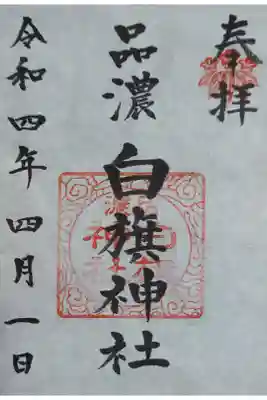 奉拝
品濃
白旗神社
令和四年四月一日